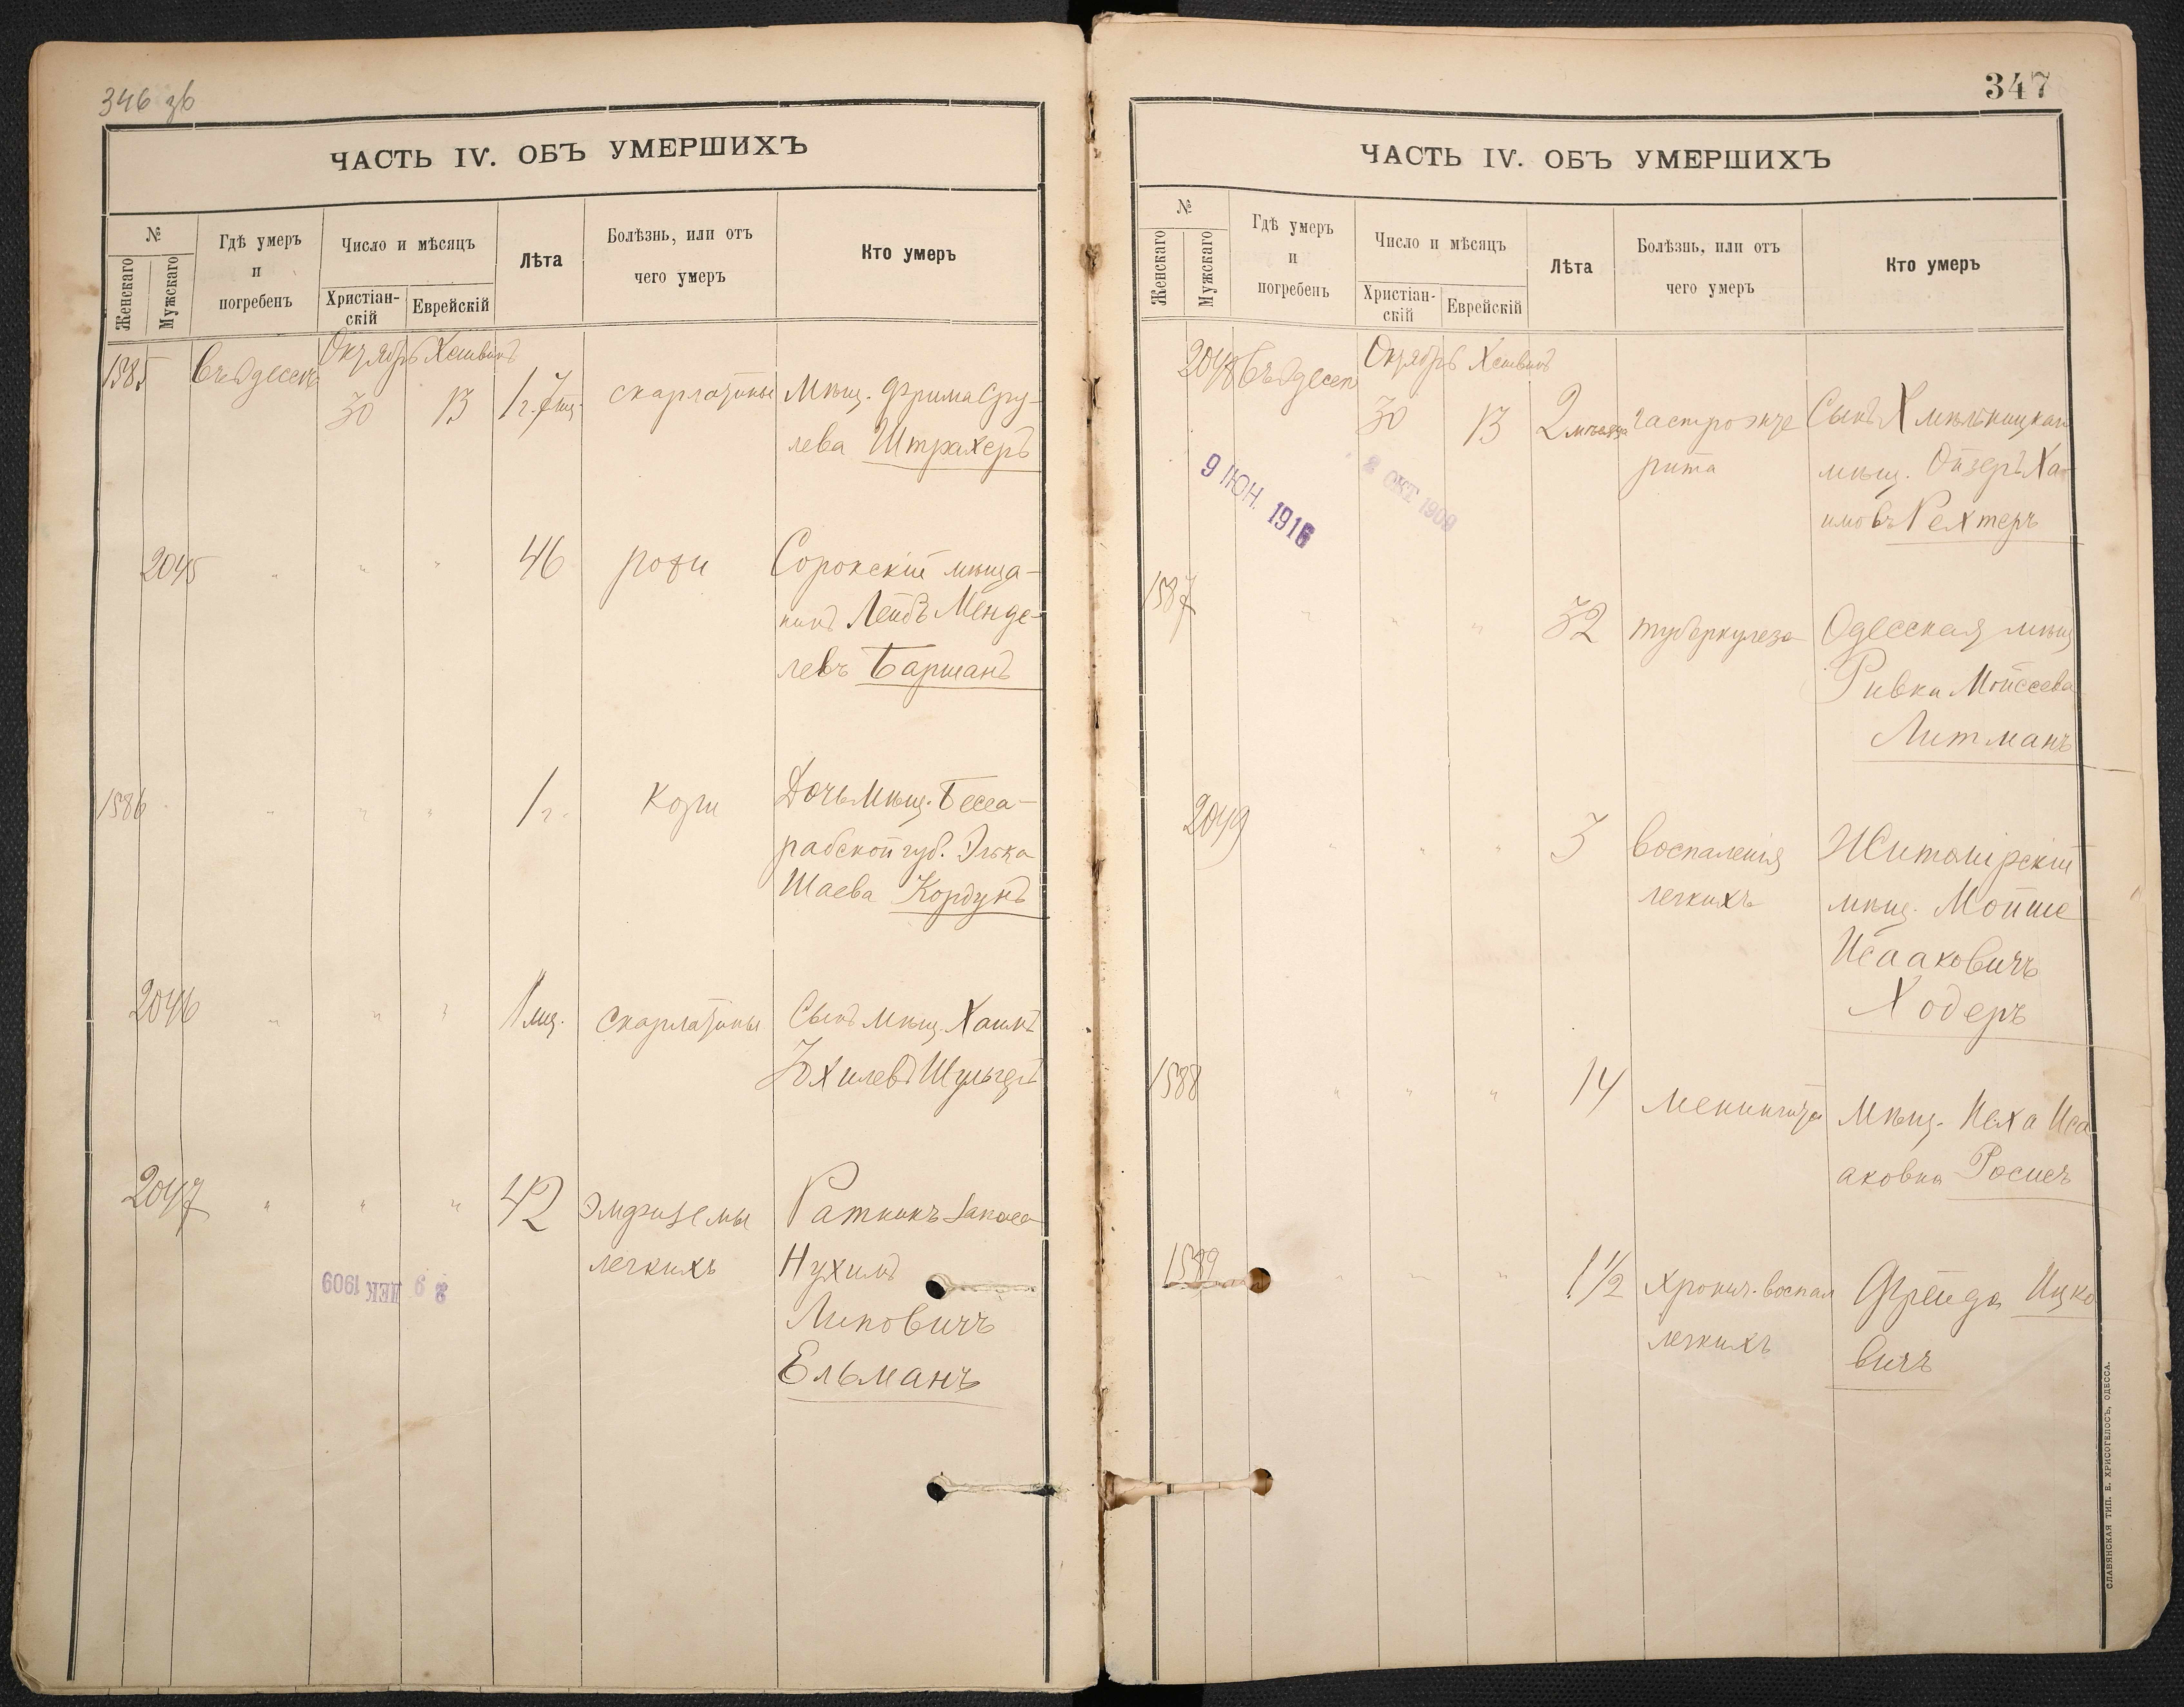 346 зв
ЧАСТЬ IV. ОБЪ УМЕРШИХЪ
№
Женскаго
Мужскаго
Гдѣ умеръ
и
погребенъ
Число и мѣсяцъ
Христіан-
скій
Еврейскій
Лѣта
Болѣзнь, или отъ
чего умеръ
Кто умеръ
1585
Октябрь Хешвонъ
30 13 1 г. 7 мц. скарлатины Мѣщ. Фрима Сру-
лева Штрахеръ
2045 " " " 46 рожи Сорокскій мѣща-
нинъ Лейбъ Менде-
левъ Баршанъ
1586 " " " 1 г. Кори Дочь Мѣщ. Бесса-
рабской губ. Элька
Шаева Кордунъ
2046 " " " 1 мц. Скарлатины Сынъ мѣщ. Хаимъ
2047 " " " 42 Эмфиземы Ратникъ запаса
легкихъ Нухимъ
Липовичъ
Ельманъ
29 ДЕК 1909
347
ЧАСТЬ IV. ОБЪ УМЕРШИХЪ
№
Женскаго
Мужскаго
Гдѣ умеръ
и
погребенъ
Число и мѣсяцъ
Христіан-
скій
Еврейскій
Лѣта
Болѣзнь, или отъ
чего умеръ
Кто умеръ
2048
Октябрь Хешвонъ
30 13 2 мѣсяца гастроэнте
рита
Сынъ Хмѣльницкаго
мѣщ. Ойзеръ Ха-
имовъ Рехтеръ
9 ИЮН. 1916
2 ОКТ 1909
1587 " " " 32 туберкулеза Одесская мѣщ
Ривка Мойсеева
Литманъ
2049 " " " 3 воспаленія Житомірскій
легкихъ мѣщ. Мойше
Исааковичъ
Ходеръ
1588 " " " 14 менингита Мѣщ. Неха Иса
аковна
1589 " " " 1 1/2 хронич. воспал Фрейда Ицко
легкихъ вичъ
СЛАВЯНСКАЯ ТИП. Е. ХРИСОГЕЛОСЪ, ОДЕССА.